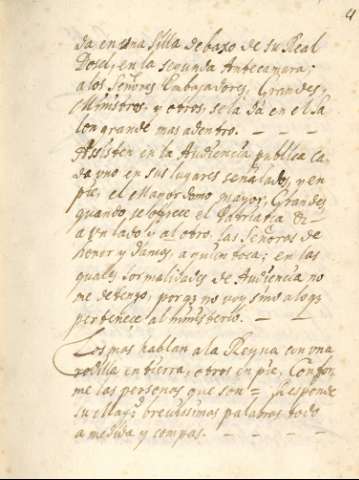 4
da en una silla debaxo de su Real
Dosel, en la segunda Antecamara;
a los Señores Embajadores, Grandes,
Ministros, y otros, se la da en el Sa
lon grande mas adentro. - - -
Assisten en la Audiencia publica ca
da uno en sus lugares señalados, y en
pie, el Mayordomo mayor, Grandes
quando se ofrece el Patriarca &
a un lado y al otro, las Señoras de
honor y Damas, a quien toca; en las
quales formalidades de Audiencia no
me detengo, porq voy sino a loq
pertenece al ministerio. - -
Los mas hablan a la Reyna con una
rodilla en tierra, otros en pie, Confor
me las personas que son = Responde
su Magd brevissimas palabras todo
a medida y compas. - - - -